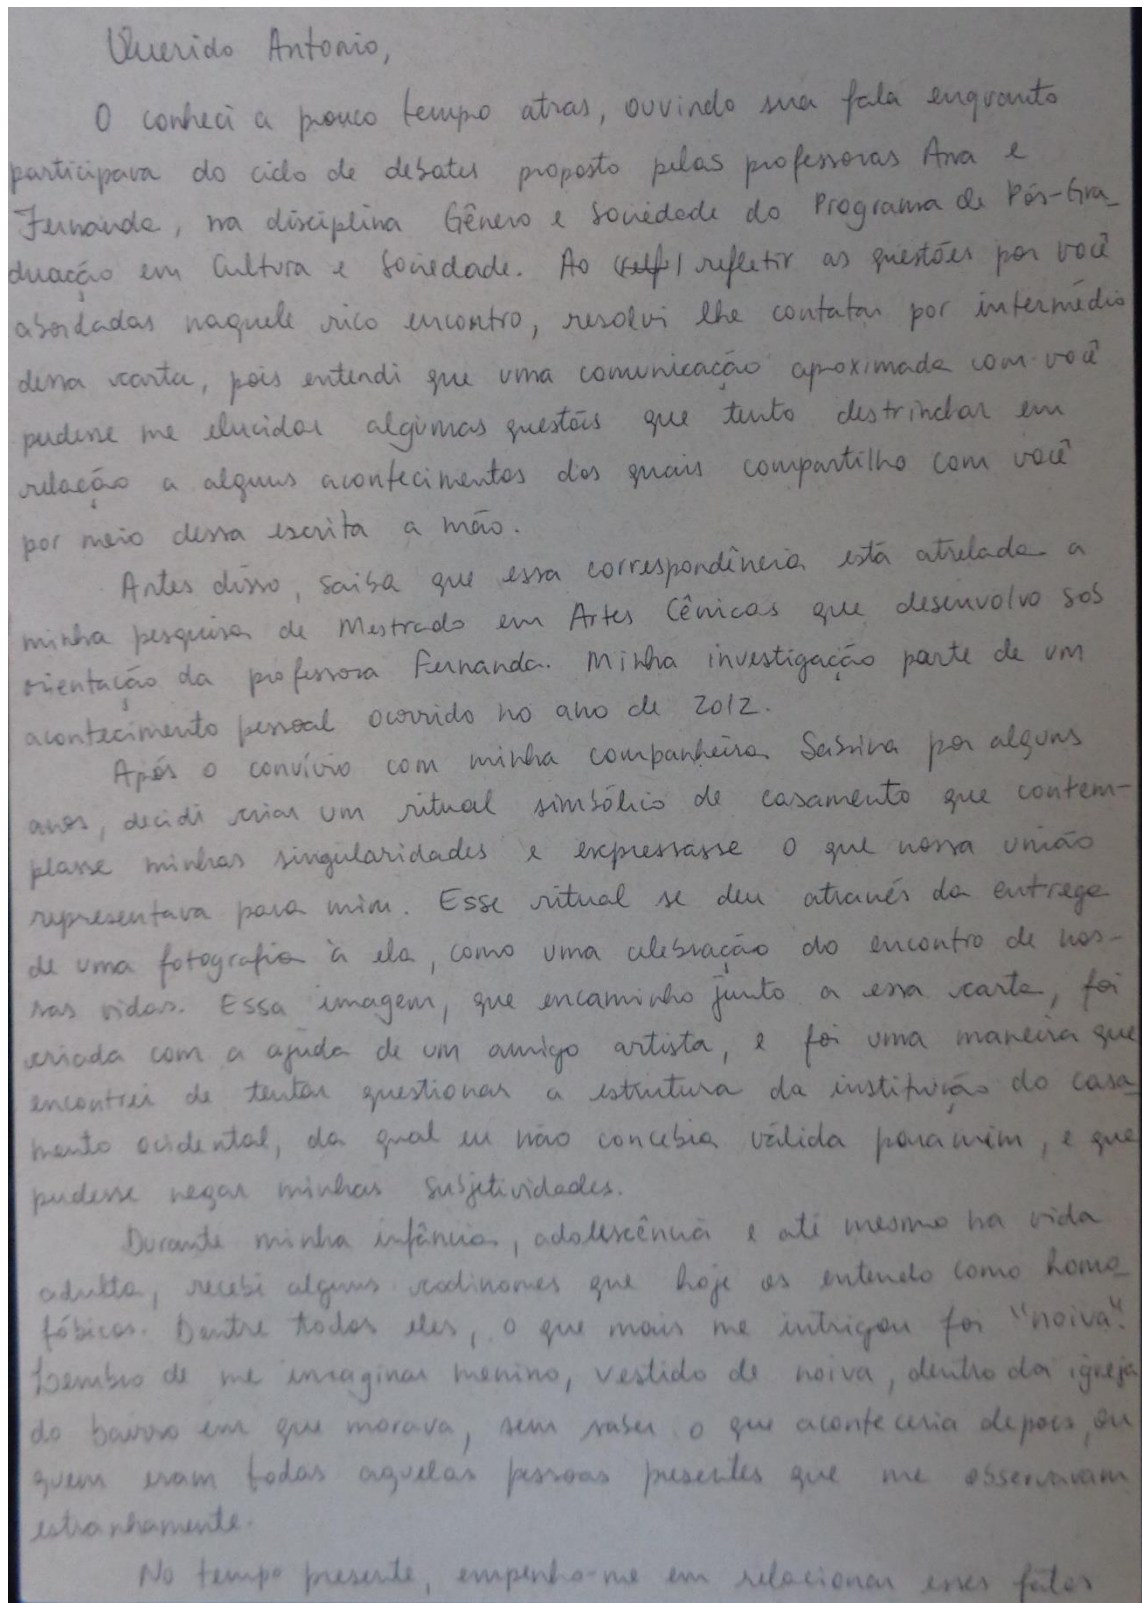 Querido Antonio,
O conheci a pouco tempo atras, ouvindo sua fala enquanto
participava do ciclo de debates proposto pelas professoras Ana e
Fernanda, na disciplina Gênero e Sociedade do Programa de Pós-Gra-
duação em Cultura e Sociedade. Ao refletir as questões por você
abordadas naquele rico encontro, resolvi lhe contatar por intermédio
dessa carta, pois entendi que uma comunicação aproximada com você
pudesse me elucidar algumas questões que tento destrinchar em
relação a alguns acontecimentos dos quais compartilho com você
por meio dessa escrita a mão.
Antes disso, saiba que essa correspondência está atrelada a
minha pesquisa de Mestrado em Artes Cênicas que desenvolvo sob
orientação da professora Fernanda. Minha investigação parte de um
acontecimento pessoal ocorrido no ano de 2012.
Após o convívio com minha companheira Sabrina por alguns
anos, decidi criar um ritual simbólico de casamento que contem-
plasse minhas singularidades e expressasse o que nossa união
representava para mim. Esse ritual se deu através da entrega
de uma fotografia à ela, como uma celebração do encontro de nos-
sas vidas. Essa imagem, que encaminho junto a essa carta, foi
criada com a ajuda de um amigo artista, e foi uma maneira que
encontrei de tentar questionar a estrutura da instituição do casa-
mento ocidental, da qual eu não concebia válida para mim, e que
pudesse negar minhas subjetividades.
Durante minha infância, adolescência e até mesmo na vida
adulta, recebi alguns codinomes que hoje os entendo como homo-
fóbicos. Dentre todos eles, o que mais me intrigou foi "noiva".
Lembro de me imaginar menino, vestido de noiva, dentro da igreja
do bairro em que morava, sem saber o que aconteceria depois, ou
quem eram todas aquelas pessoas presentes que me observavam
estranhamente.
No tempo presente, empenho-me em relacionar esses fatos